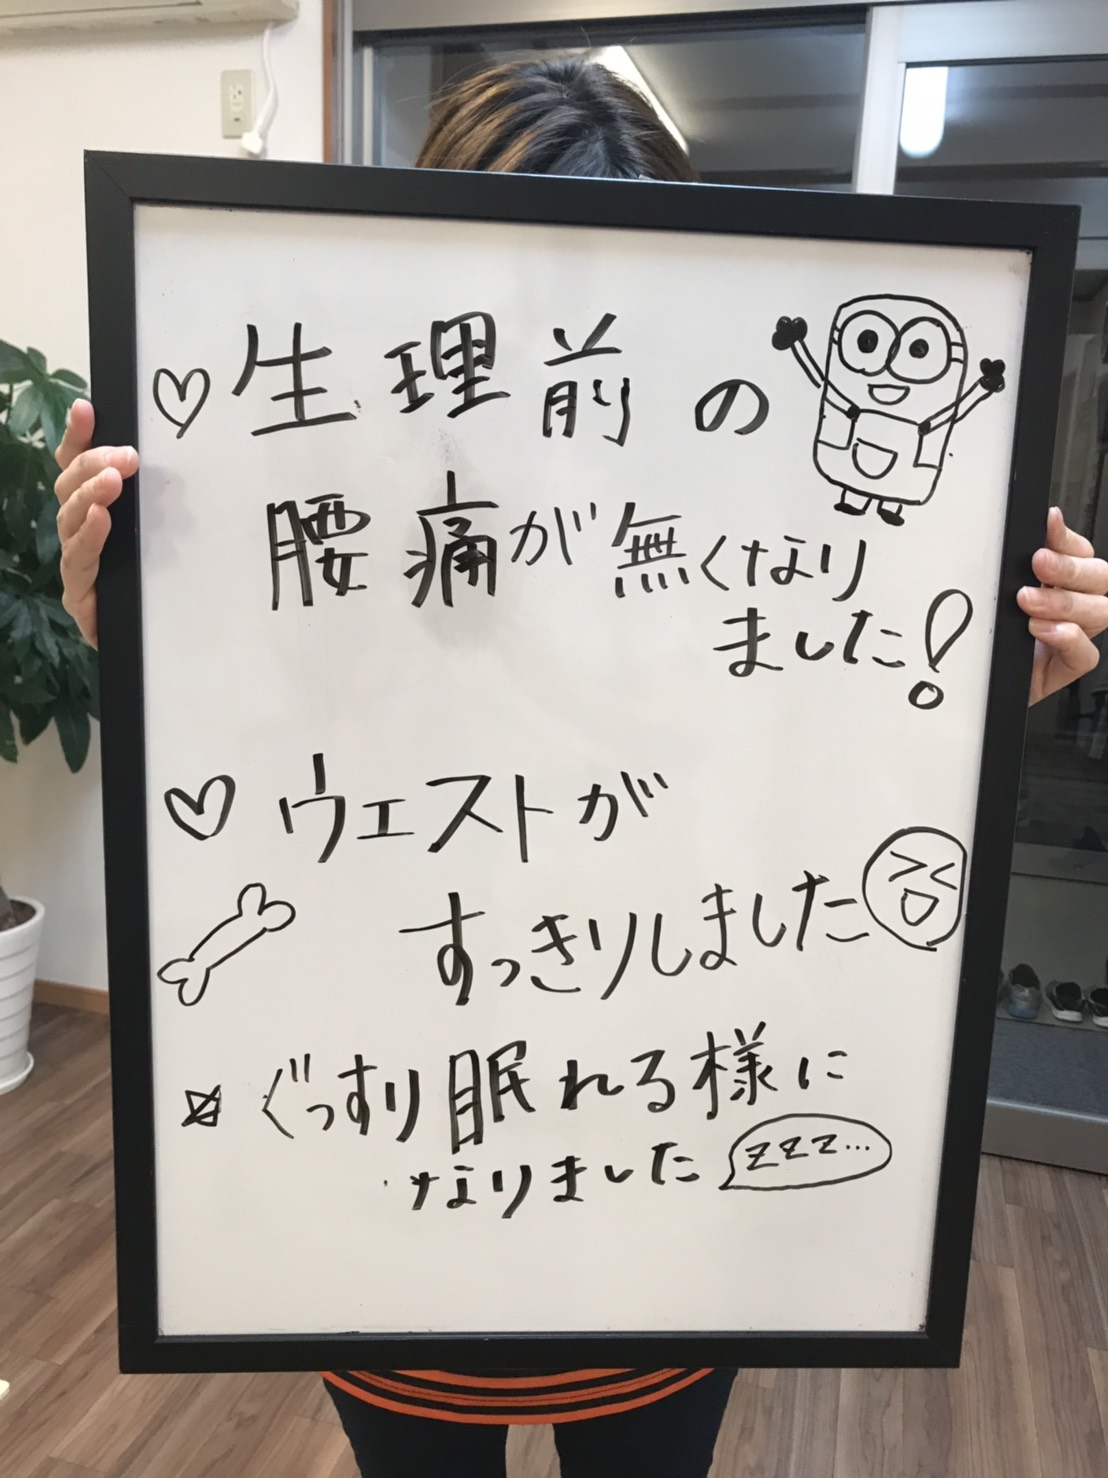 ♡生理前の
腰痛が無くなり
ました!
♡ウエストが
すっきりしました
☆ぐっすり眠れる様に
なりました zzz...